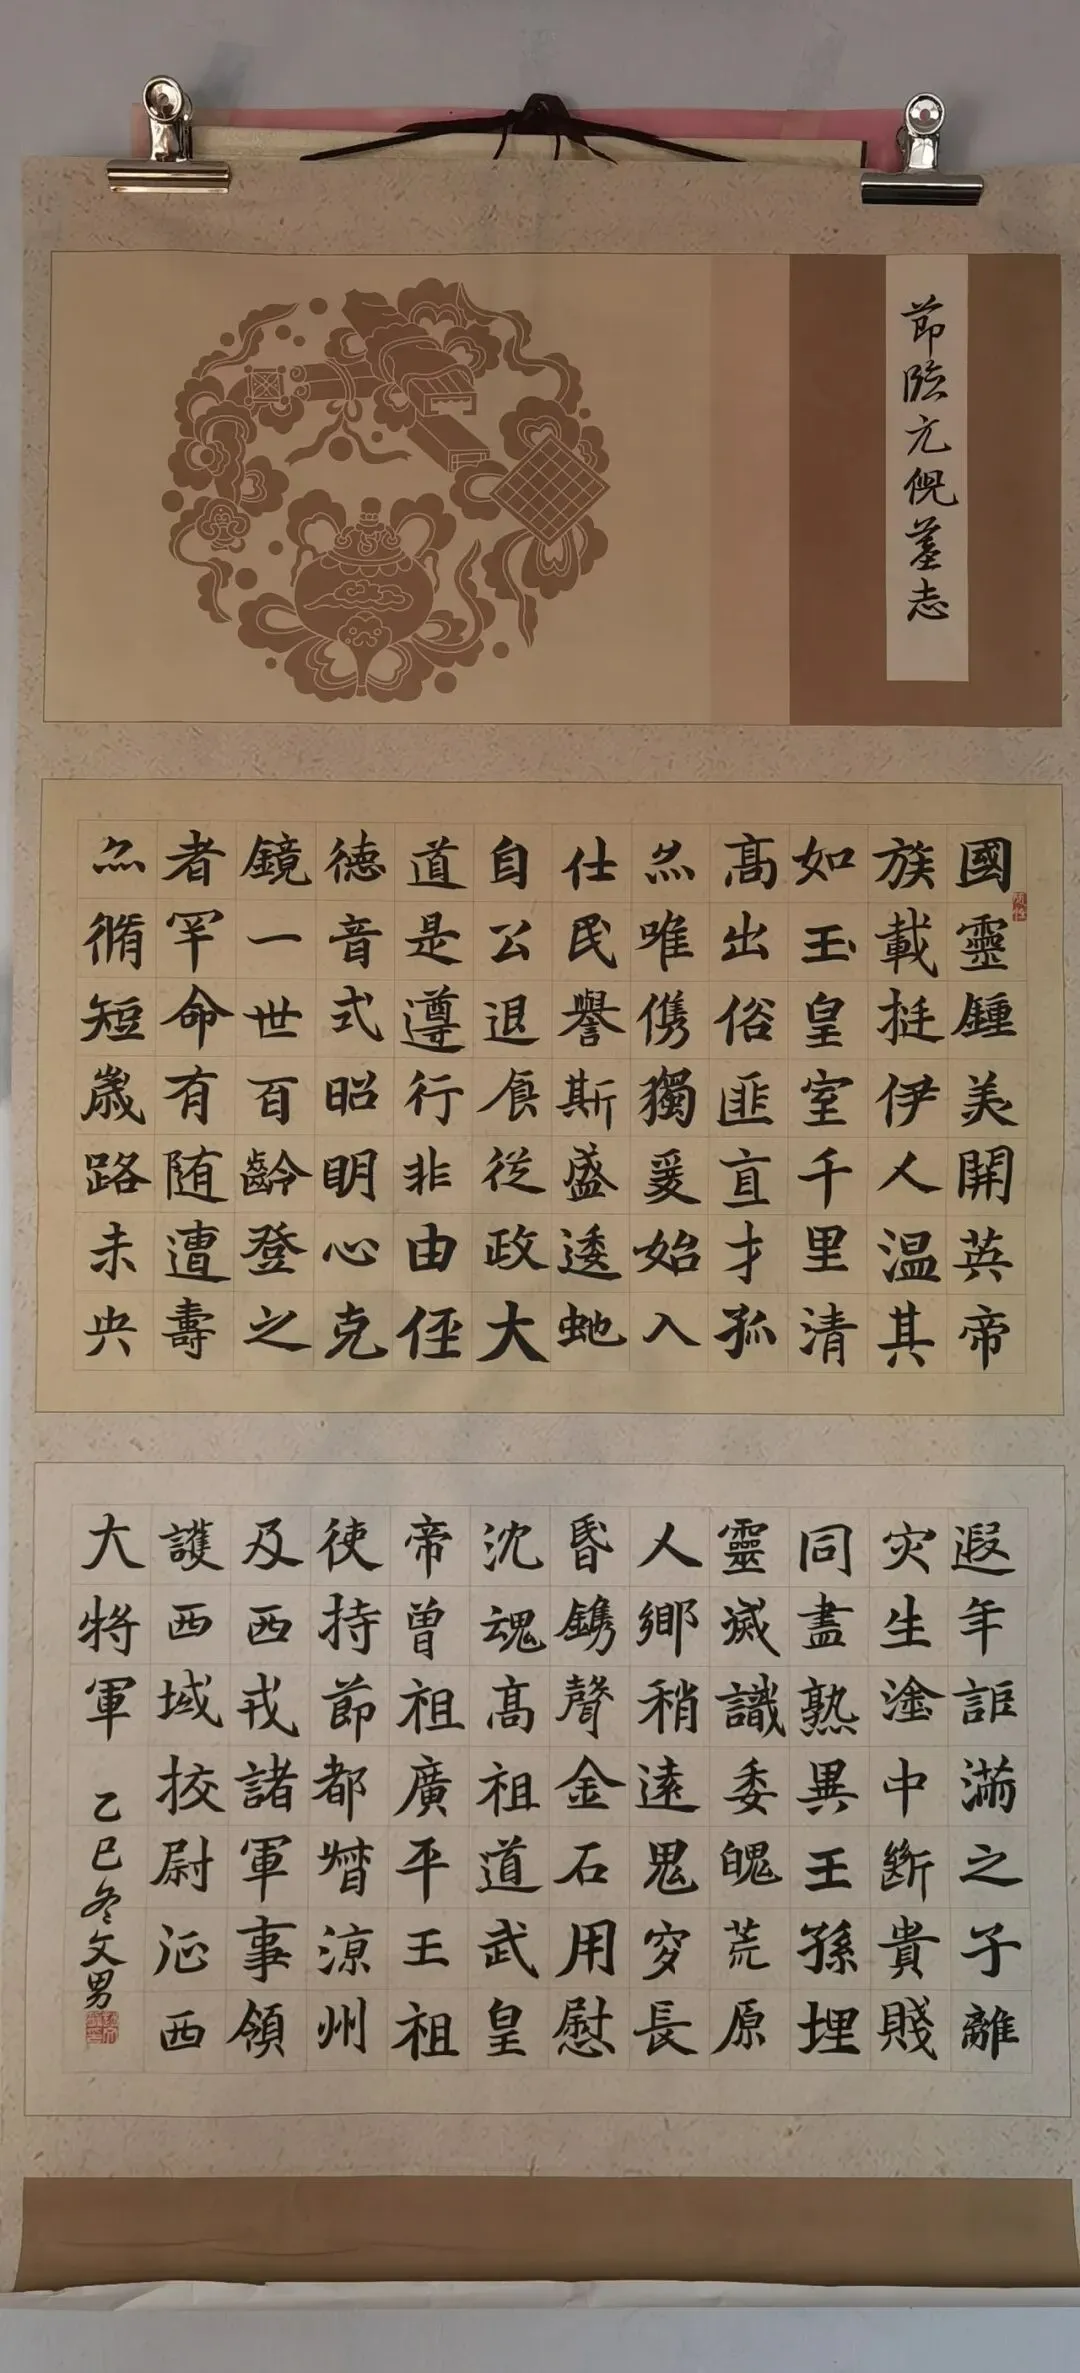 節臨元倪墓志
國靈鍾美開英帝
族載挺伊人温其
如玉皇室千里清
高出俗匪直才孤
然唯儁獨爰始入
仕民譽斯盛逶虵
自公退食從政大
道是遵行非由侄
德音式昭明心克
鏡一世百齡登之
者罕命有随遭壽
亦脩短歲路未央
遐年詎滿之子離
灾生塗中斷貴賤
同盡熟異王孫埋
靈滅識委魄荒原
人鄉稍遠鬼穸長
昏鐫聲金石用慰
沈魂高祖道武皇
帝曾祖廣平王祖
使持節都督涼州
及西戎諸軍事領
護西域挍尉征西
大将軍
乙巳冬文男